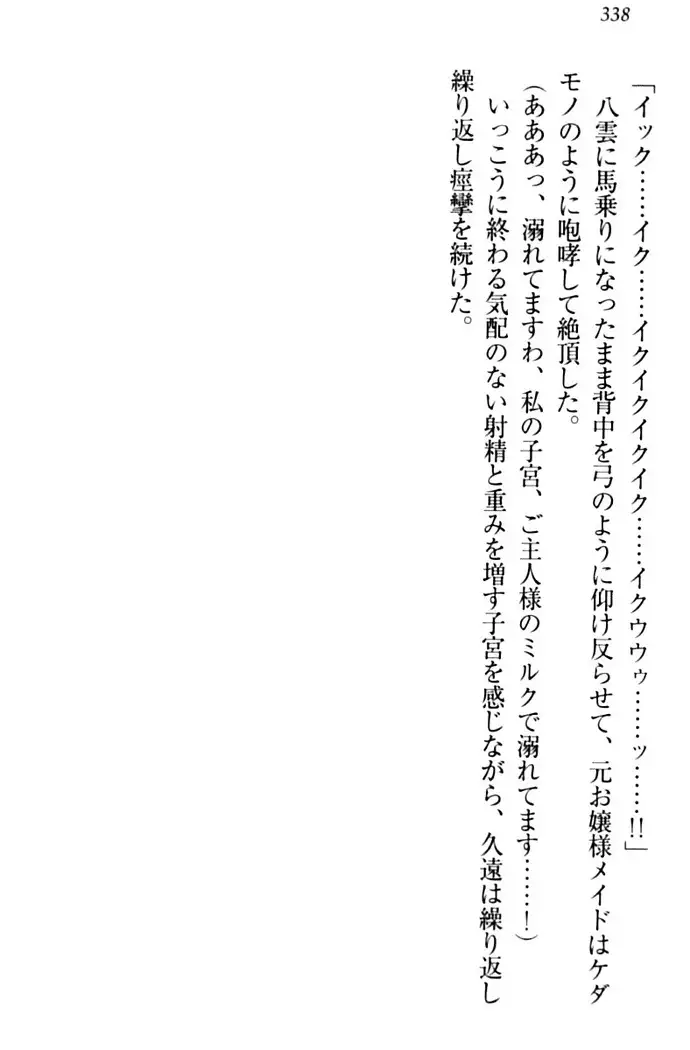 338
「イック……イク……イクイクイクイク……イクウウゥ………ッ………!!」
　八雲に馬乗りになったまま背中を弓のように仰け反らせて、元お嬢様メイドはケダ
モノのように咆哮して絶頂した。
(あああっ、溺れてますわ、私の子宮、ご主人様のミルクで溺れてます……！)
　いっこうに終わる気配のない射精と重みを増す子宮を感じながら、久遠は繰り返し
繰り返し痙攣を続けた。